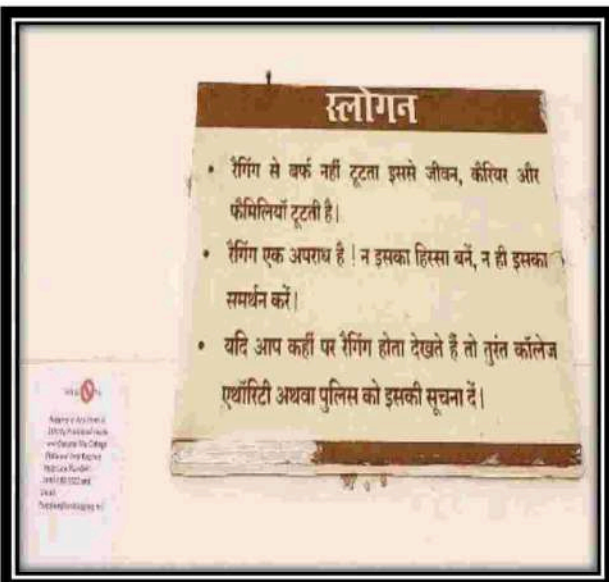 स्लोगन
• रैगिंग से बर्फ नहीं टूटता इससे जीवन, कैरियर और
फैमिलियाँ टूटती है।
• रैगिंग एक अपराध है ! न इसका हिस्सा बनें, न ही इसका
समर्थन करें।
• यदि आप कहीं पर रैगिंग होता देखते हैं तो तुरंत कॉलेज
एथॉरिटी अथवा पुलिस को इसकी सूचना दें।